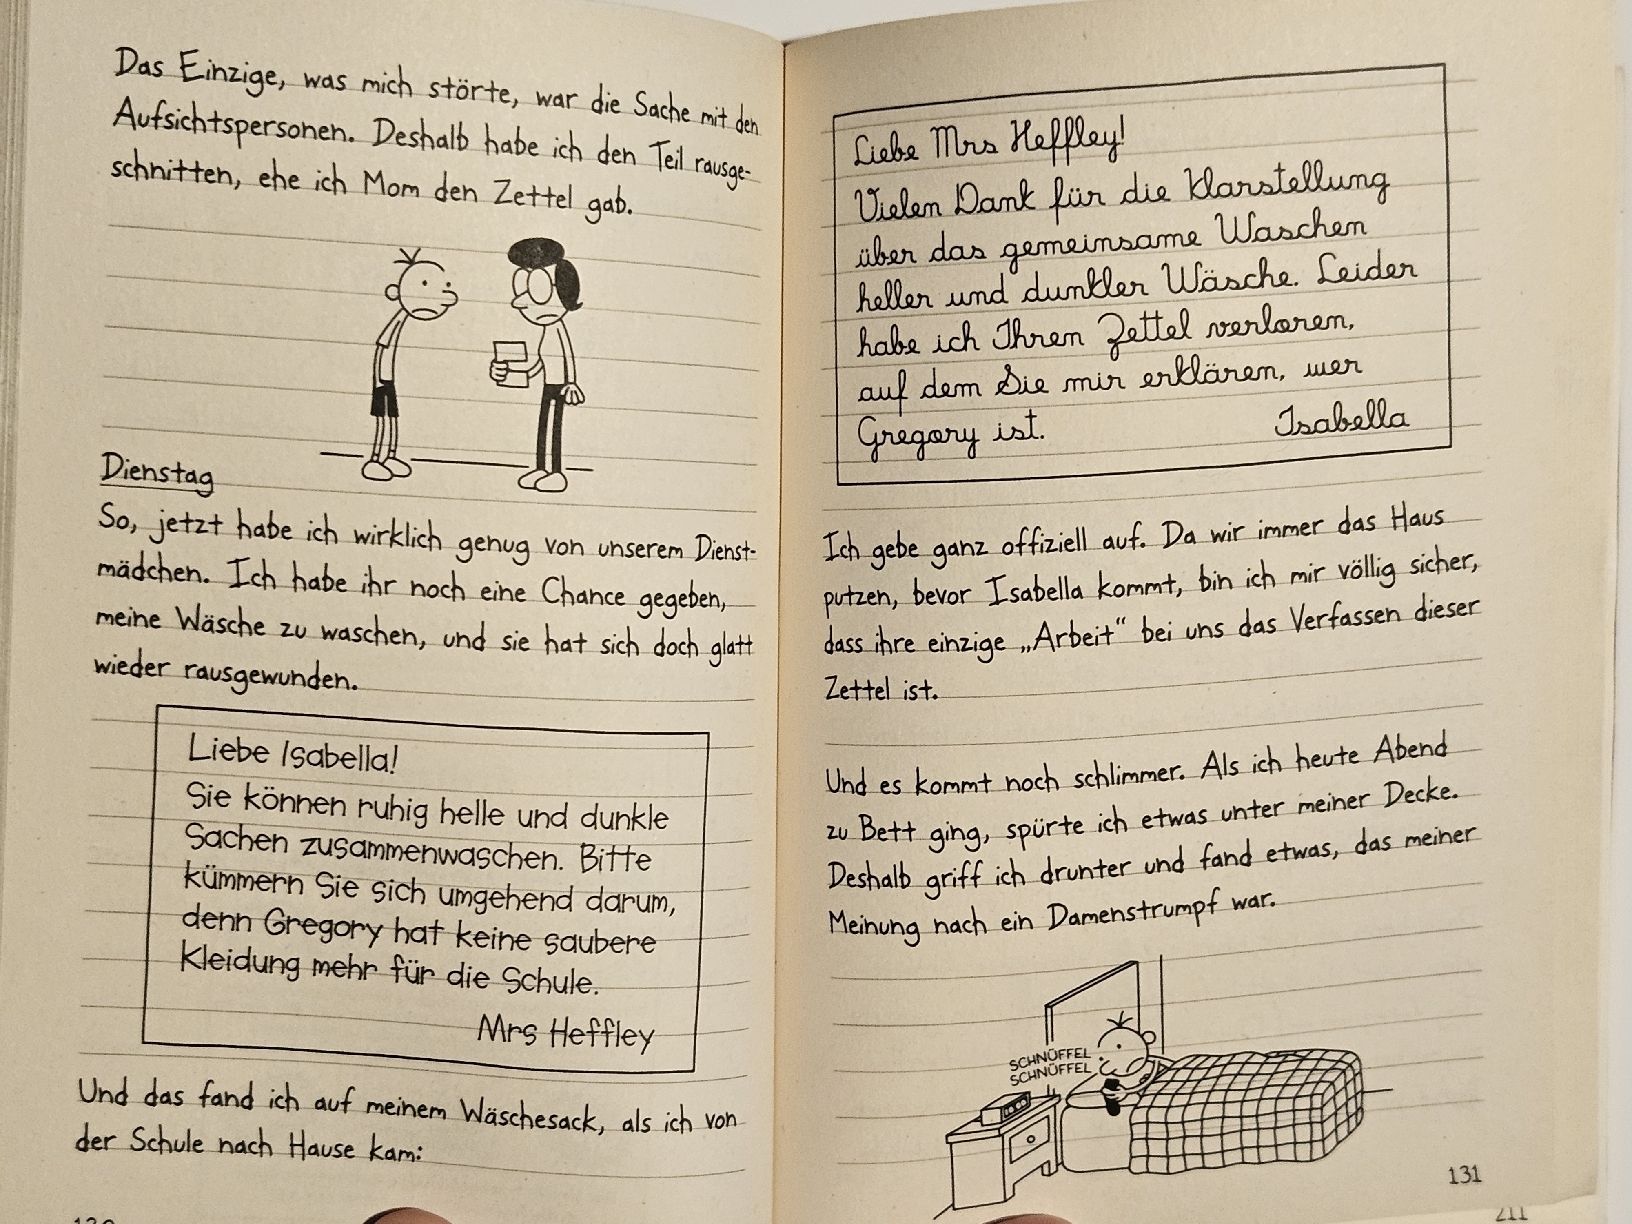 Das Einzige, was mich störte, war die Sache mit den
Aufsichtspersonen. Deshalb habe ich den Teil rausge-
schnitten, ehe ich Mom den Zettel gab.
Dienstag
So, jetzt habe ich wirklich genug von unserem Dienst-
mädchen. Ich habe ihr noch eine Chance gegeben,
meine Wäsche zu waschen, und sie hat sich doch glatt
wieder rausgewunden.
Liebe Isabella!
Sie können ruhig helle und dunkle
Sachen zusammenwaschen. Bitte
kümmern Sie sich umgehend darum,
denn Gregory hat keine saubere
Kleidung mehr für die Schule.
Mrs Heffley
Und das fand ich auf meinem Wäschesack, als ich von
der Schule nach Hause kam:
Liebe Mrs Heffley!
Vielen Dank für die Klarstellung
über das gemeinsame Waschen
heller und dunkler Wäsche. Leider
habe ich Ihren Zettel verloren,
auf dem Sie mir erklären, wer
Gregory ist. Isabella
Ich gebe ganz offiziell auf. Da wir immer das Haus
putzen, bevor Isabella kommt, bin ich mir völlig sicher,
dass ihre einzige „Arbeit“ bei uns das Verfassen dieser
Zettel ist.
Und es kommt noch schlimmer. Als ich heute Abend
zu Bett ging, spürte ich etwas unter meiner Decke.
Deshalb griff ich drunter und fand etwas, das meiner
Meinung nach ein Damenstrumpf war.
SCHNÜFFEL
SCHNÜFFEL
131